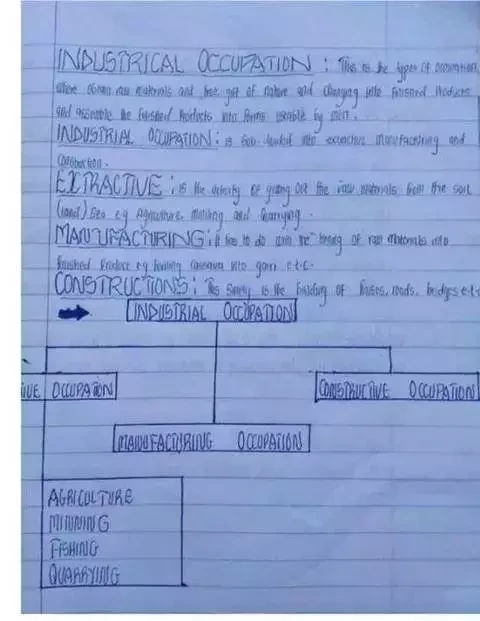 INDUSTRICAL OCCUPATION : This is the types of occupation
raw materials and free gift of nature and changing into finished Products
and assemble the finished Products into forms useable by men.
INDUSTRIAL OCCUPATION : is Sub-divided into extractive manufacturing and
Construction.
EXTRACTIVE : is the activity of the raw materials from the soil
(land) Sea e.g Agriculture, mining and Quarrying.
MANUFACTURING : it has to do with the turning of raw materials into
finished Product e.g turning Cassava into garri e.t.c
CONSTRUCTIONS : This Simply is the building of houses, roads, bridges e.t.c
INDUSTRIAL OCCUPATION
IVE OCCUPATION
CONSTRUCTIVE OCCUPATION
MANUFACTURING OCCUPATION
AGRICULTURE
MINNING
FISHING
QUARRYING